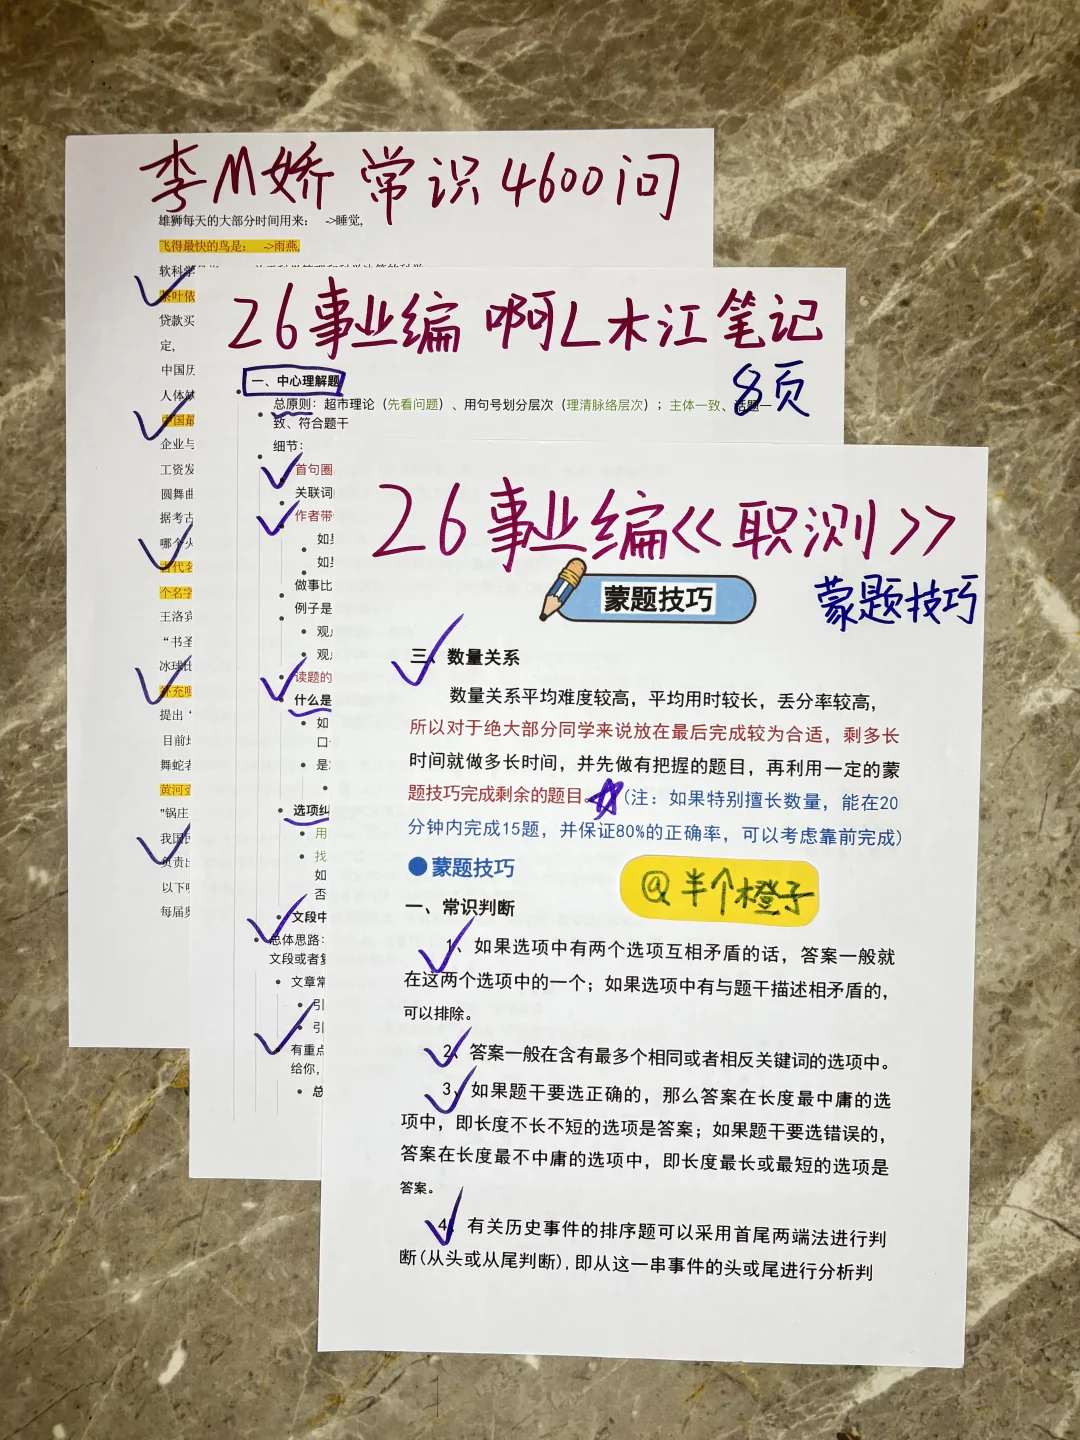 李M娇 常识4600问
雄狮每天的大部分时间用来： ->睡觉,
飞得最快的鸟是： ->雨燕,
软科学
茶叶依
贷款买
定,
中国历
人体缺
中国最
企业与
工资发
圆舞曲
据考古
哪个火
古代名
个名字
王洛宾
“书圣
冰球比
补充哪
提出‘
目前
舞蛇者
黄河
"锅庄
我国
负责
以下哪
每届奥
26事业编 啊L木江笔记
8页
一、中心理解题
总原则：超市理论（先看问题）、用句号划分层次（理清脉络层次）；主体一致、话题一
致、符合题干
细节：
首句圈
关联词
作者带
如
如
做事比
例子是
观
观
读题的
什么是
如
口
是
选项纠
用
找
如
否
文段中
总体思路：
文段或者复
文章常
引
引
有重点
给你，
总
26事业编《职测》
蒙题技巧
蒙题技巧
三、数量关系
数量关系平均难度较高，平均用时较长，丢分率较高，
所以对于绝大部分同学来说放在最后完成较为合适，剩多长
时间就做多长时间，并先做有把握的题目，再利用一定的蒙
题技巧完成剩余的题目。（注：如果特别擅长数量，能在20
分钟内完成15题，并保证80%的正确率，可以考虑靠前完成）
蒙题技巧
@半个橙子
一、常识判断
1、如果选项中有两个选项互相矛盾的话，答案一般就
在这两个选项中的一个；如果选项中有与题干描述相矛盾的，
可以排除。
2、答案一般在含有最多个相同或者相反关键词的选项中。
3、如果题干要选正确的，那么答案在长度最中庸的选
项中，即长度不长不短的选项是答案；如果题干要选错误的，
答案在长度最不中庸的选项中，即长度最长或最短的选项是
答案。
4、有关历史事件的排序题可以采用首尾两端法进行判
断(从头或从尾判断),即从这一串事件的头或尾进行分析判